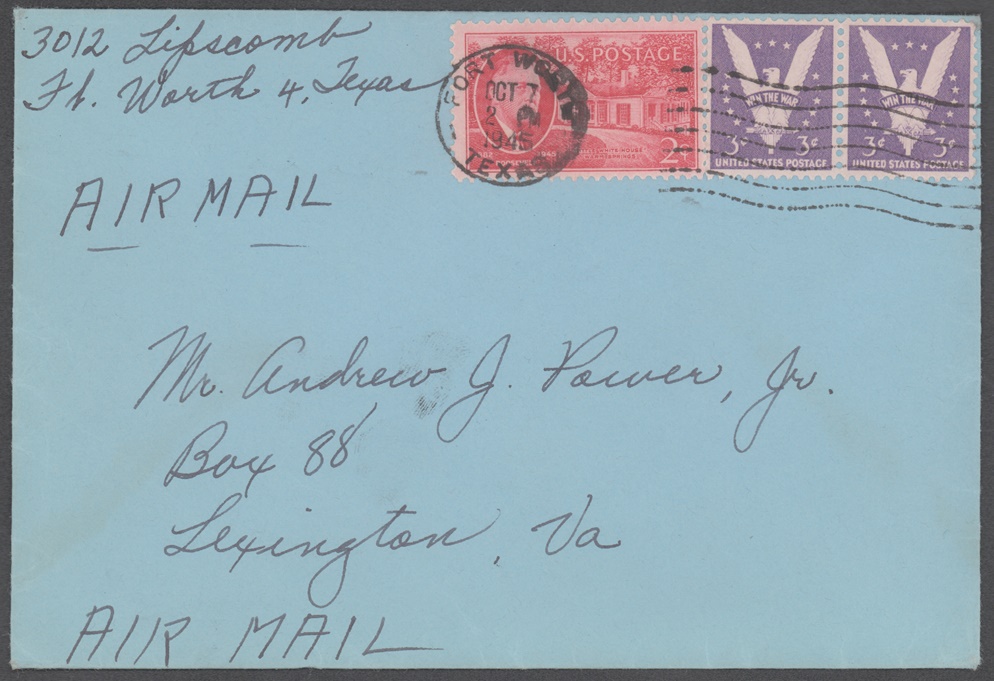 3012 Lipscomb
Ft. Worth 4, Texas
FORT WORTH
OCT 7
2
1945
TEXAS
U.S. POSTAGE
LITTLE WHITE HOUSE
WARM SPRINGS
2¢
WIN THE WAR
3¢ 3¢
UNITED STATES POSTAGE
WIN THE WAR
3¢ 3¢
UNITED STATES POSTAGE
AIR MAIL
Mr. Andrew J. Power, Jr.
Box 88
Lexington, Va
AIR MAIL